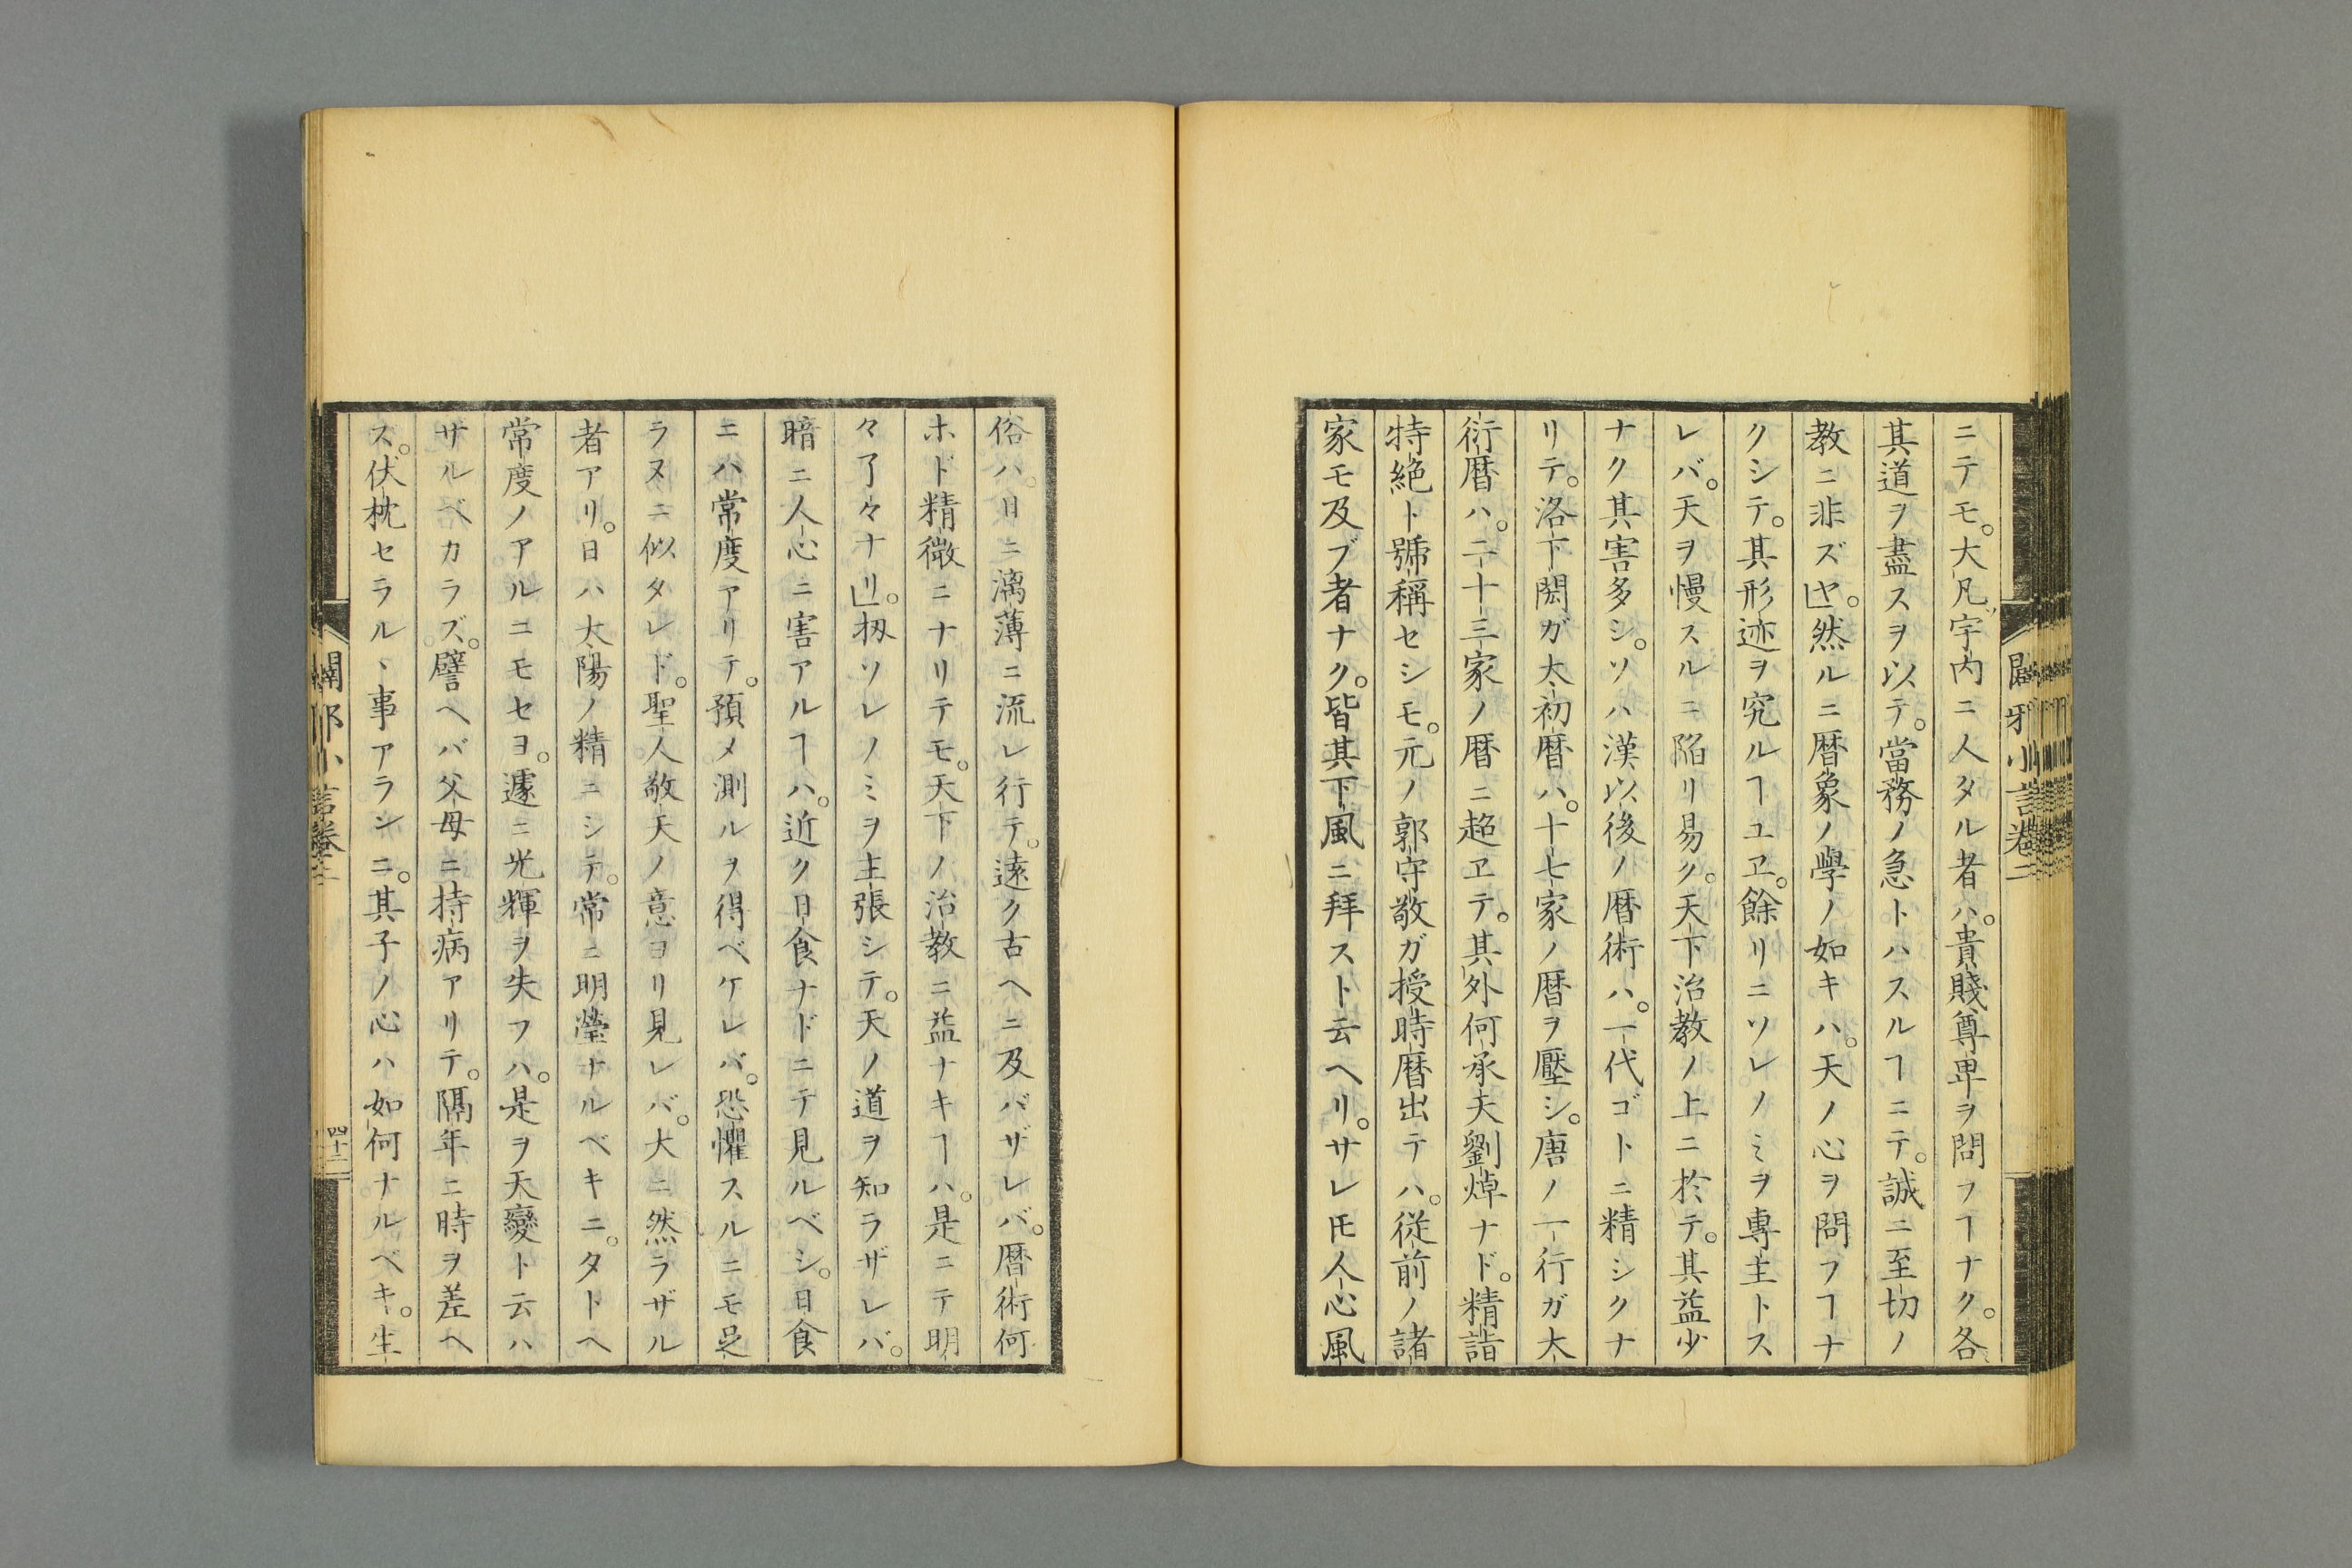 闢邪小言卷二
ニテモ。大凡宇内ニ人タル者ハ。貴賤尊卑ヲ問フヿナク。各
其道ヲ盡スヲ以テ。當務ノ急トハスルヿニテ。誠ニ至切ノ
教ニ非ズヤ」。然ルニ暦象ノ學ノ如キハ。天ノ心ヲ問フヿナ
クシテ。其形迹ヲ究ルヿユヱ。餘リニソレノミヲ專主トス
レバ。天ヲ慢スルニ陥リ易ク。天下治教ノ上ニ於テ。其益少
ナク其害多シ。ソハ漢以後ノ暦術ハ。一代ゴトニ精シクナ
リテ。洛下閎ガ太初暦ハ。十七家ノ暦ヲ壓シ。唐ノ一行ガ大
衍暦ハ。二十三家ノ暦ニ超ヱテ。其外何承天劉焯ナド。精詣
特絶ト號稱セシモ。元ノ郭守敬ガ授時暦出テハ。従前ノ諸
家モ及ブ者ナク。皆其下風ニ拜スト云ヘリ。サレ𪜈人心風
俗ハ。日ニ漓薄ニ流レ行テ。遠ク古ヘニ及バザレバ。暦術何
ホド精微ニナリテモ。天下ノ治教ニ益ナキヿハ。是ニテ明
々了々ナリ」。扨ソレノミヲ主張シテ。天ノ道ヲ知ラザレバ。
暗ニ人心ニ害アルヿハ。近ク日食ナドニテ見ルベシ。日食
ニハ常度アリテ。預メ測ルヲ得ベケレバ。恐懼スルニモ足
ラヌニ似タレド。聖人敬天ノ意ヨリ見レバ。大ニ然ラザル
者アリ。日ハ太陽ノ精ニシテ。常ニ明瑩ナルベキニ。タトヘ
常度ノアルニモセヨ。遽ニ光輝ヲ失フハ。是ヲ天變ト云ハ
サルベカラズ。譬ヘバ父母ニ持病アリテ。隔年ニ時ヲ差ヘ
ス。伏枕セラルヽ事アランニ。其子ノ心ハ如何ナルベキ。生
闢邪小言卷二
四十二